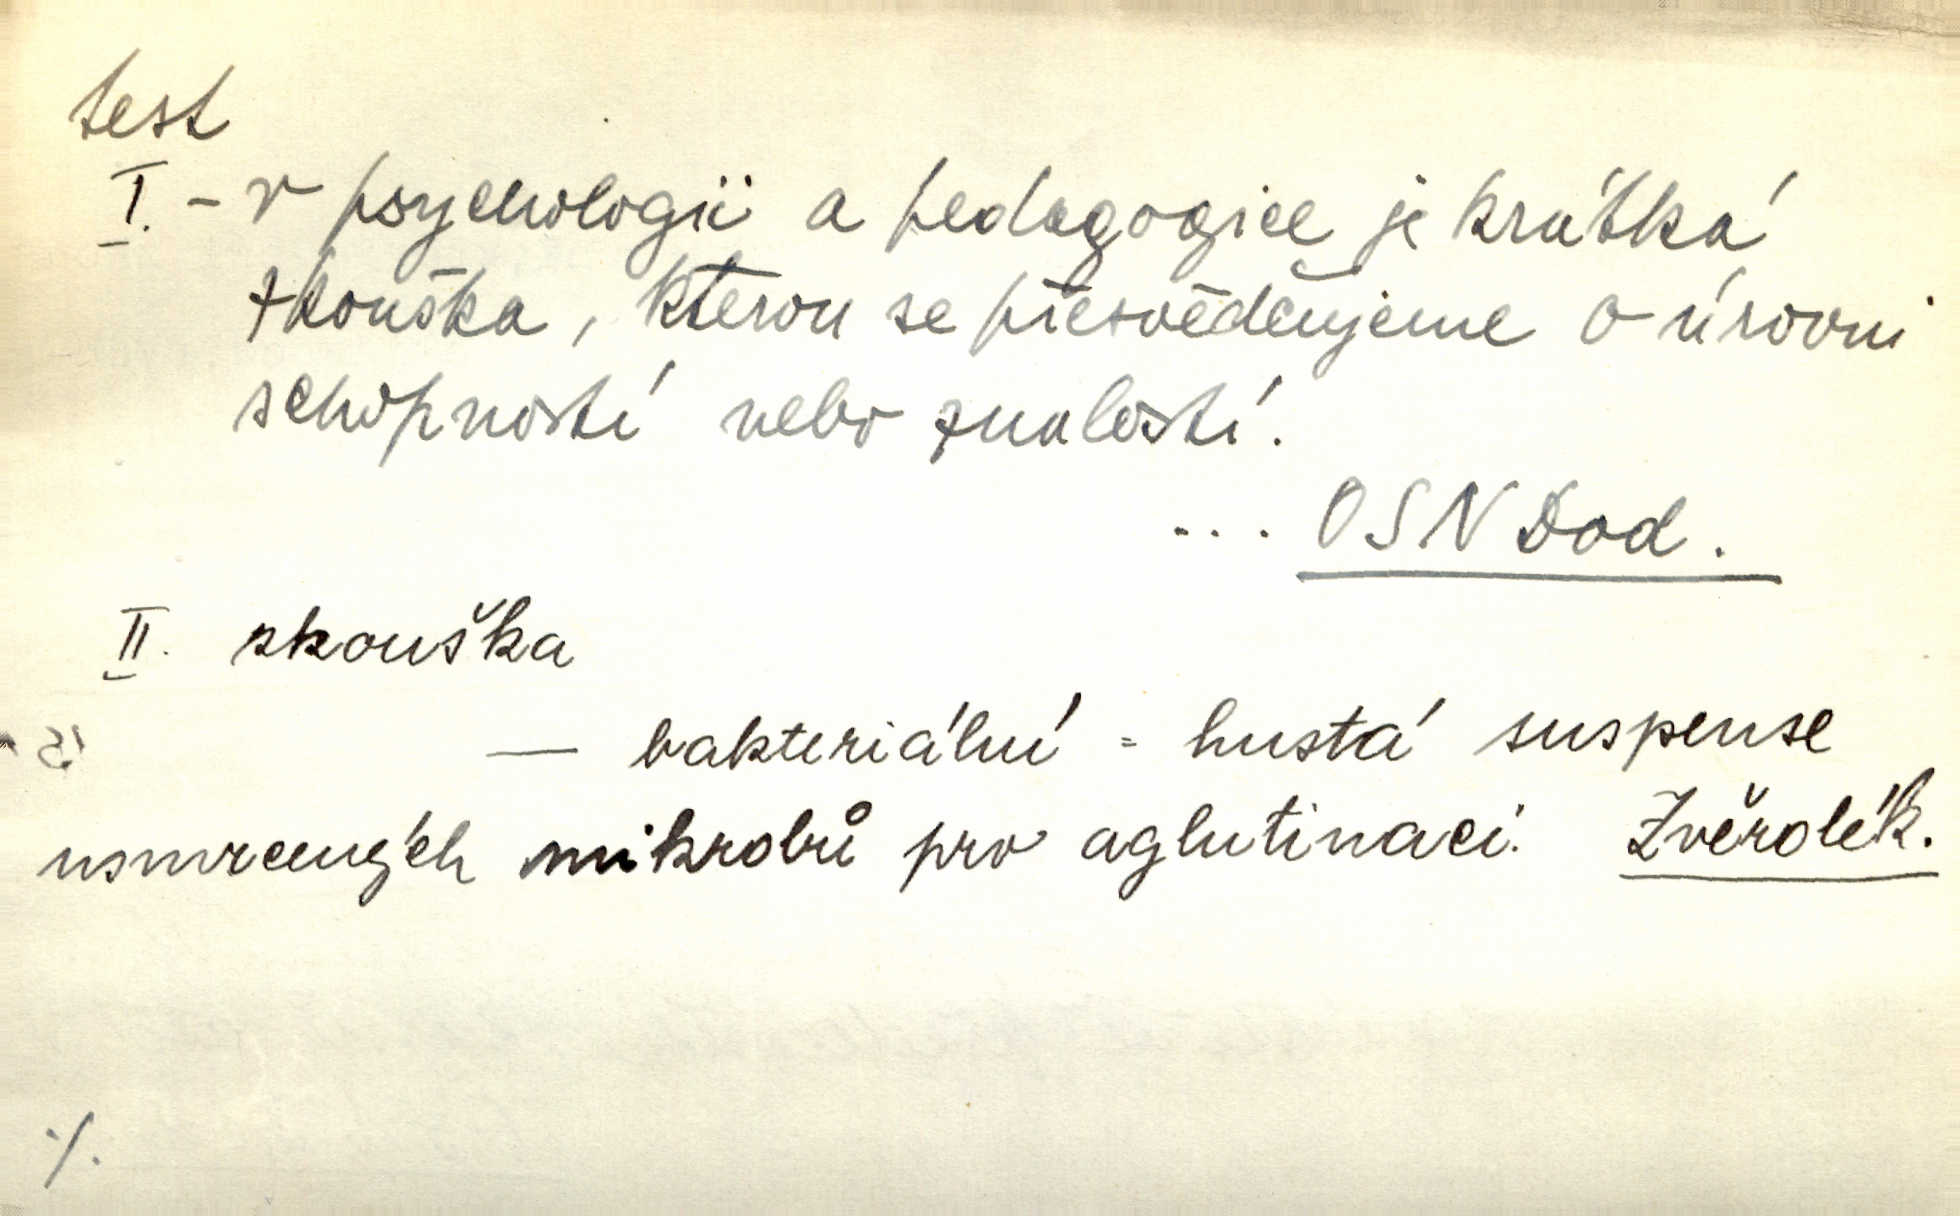 test
I. - v psychologii a pedagogice je krátká
zkouška, kterou se přesvědčujeme o úrovni
schopností nebo znalostí.
... OSN Dod.
II. zkouška
— bakteriální = hustá suspense
usmrcených mikrobů pro aglutinaci. Zvěrolék.
./.